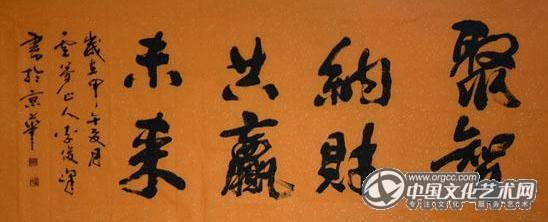 聚智
納財
共贏
未来
歲在甲午夏月
山人李俊
書於京華
www.orgcc.com
中国文化艺术网